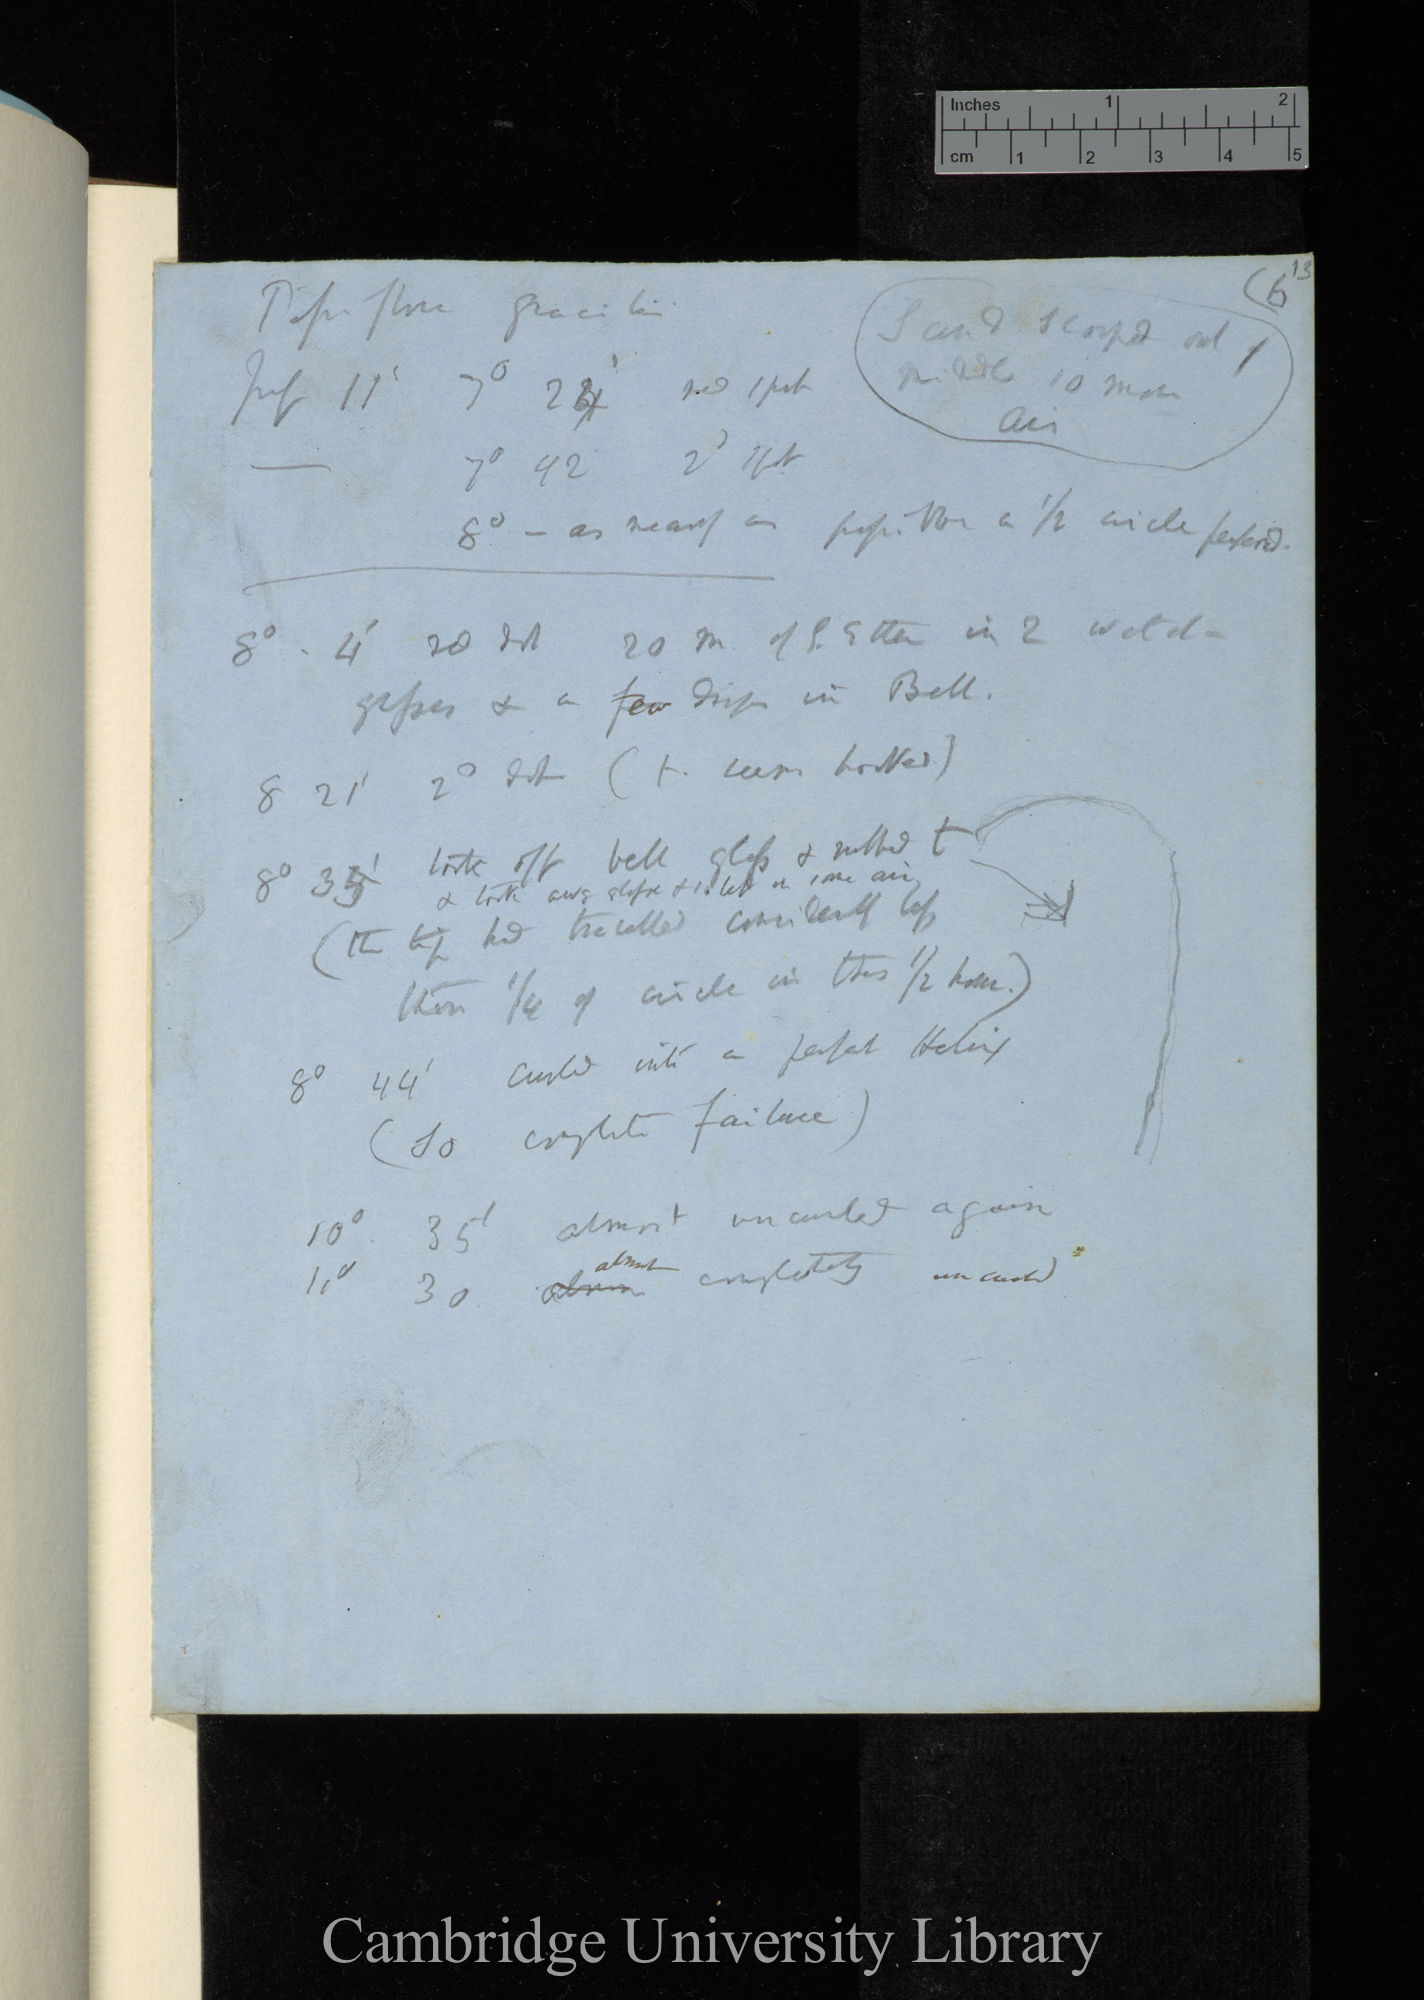 Inches 1 2
cm 1 2 3 4 5
(6 13
Passiflora gracilis
Sand scooped out
middle so more
air
July 11' 7° 24' red spot
— 7° 42 2° spot
8° – as nearly as possible a ½ circle performed.
8° . 4' red dot 20 m. of S. Ether in 2 watch-
glasses & a few drops in Bell.
8 21' 2° dot (t. seems hooked)
8° 35' took off bell glass & rubbed t
& took away glass & so let in some air
(The tip had travelled considerably less
than 1/4 of circle in this ½ hour.)
8° 44' curled into a perfect Helix
(so complete failure)
10° . 35' almost uncurled again
11° 30 almost completely uncurled
Cambridge University Library